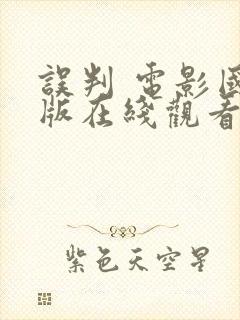 誤判 電影國
版在綫觀看
紫色天空星